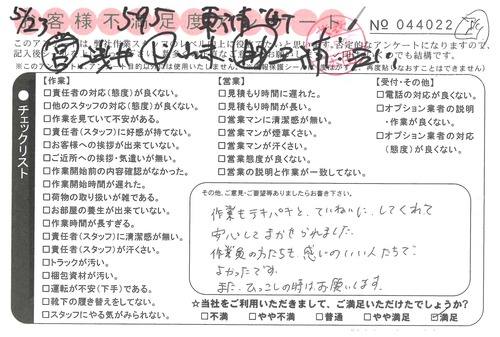 5/23 595
お客様不満足度アンケート
No 044022
チェックリスト
【作業】
□責任者の対応(態度)が良くない。
□他のスタッフの対応(態度)が良くない。
□作業を見ていて不安がある。
□責任者(スタッフ)に好感が持てない。
□お客様への挨拶が出来ていない。
□ご近所への挨拶・気遣いが無い。
□作業開始前の内容確認がなかった。
□作業開始時間が遅れた。
□荷物の取り扱いが雑である。
□お部屋の養生が出来ていない。
□作業時間が長すぎる。
□責任者(スタッフ)に清潔感が無い。
□責任者(スタッフ)が汗くさい。
□トラックが汚い。
□梱包資材が汚い。
□運転が不安(下手)である。
□靴下の履き替えをしてない。
□スタッフにやる気がみられない。
【営業】
□見積もり時間に遅れた。
□見積もり時間が長い。
□営業マンに清潔感が無い。
□営業マンが煙草くさい。
□営業マンが汗くさい。
□営業態度が良くない。
□営業の説明と作業が一致してない。
【受付・その他】
□電話の対応が良くない。
□オプション業者の説明・作業が良くない。
□オプション業者の対応(態度)が良くない。
その他、ご意見・ご要望等ありましたらお書き下さい。
作業もテキパキと、ていねいに、してくれて
安心してまかせられました。
作業員の方たちも、感じのいい人たちで
よかったです。
また、ひっこしの時はお願いします。
☆当社をご利用いただきまして、ご満足いただけたでしょうか?
□不満 □やや不満 □普通 □やや満足 ☑満足